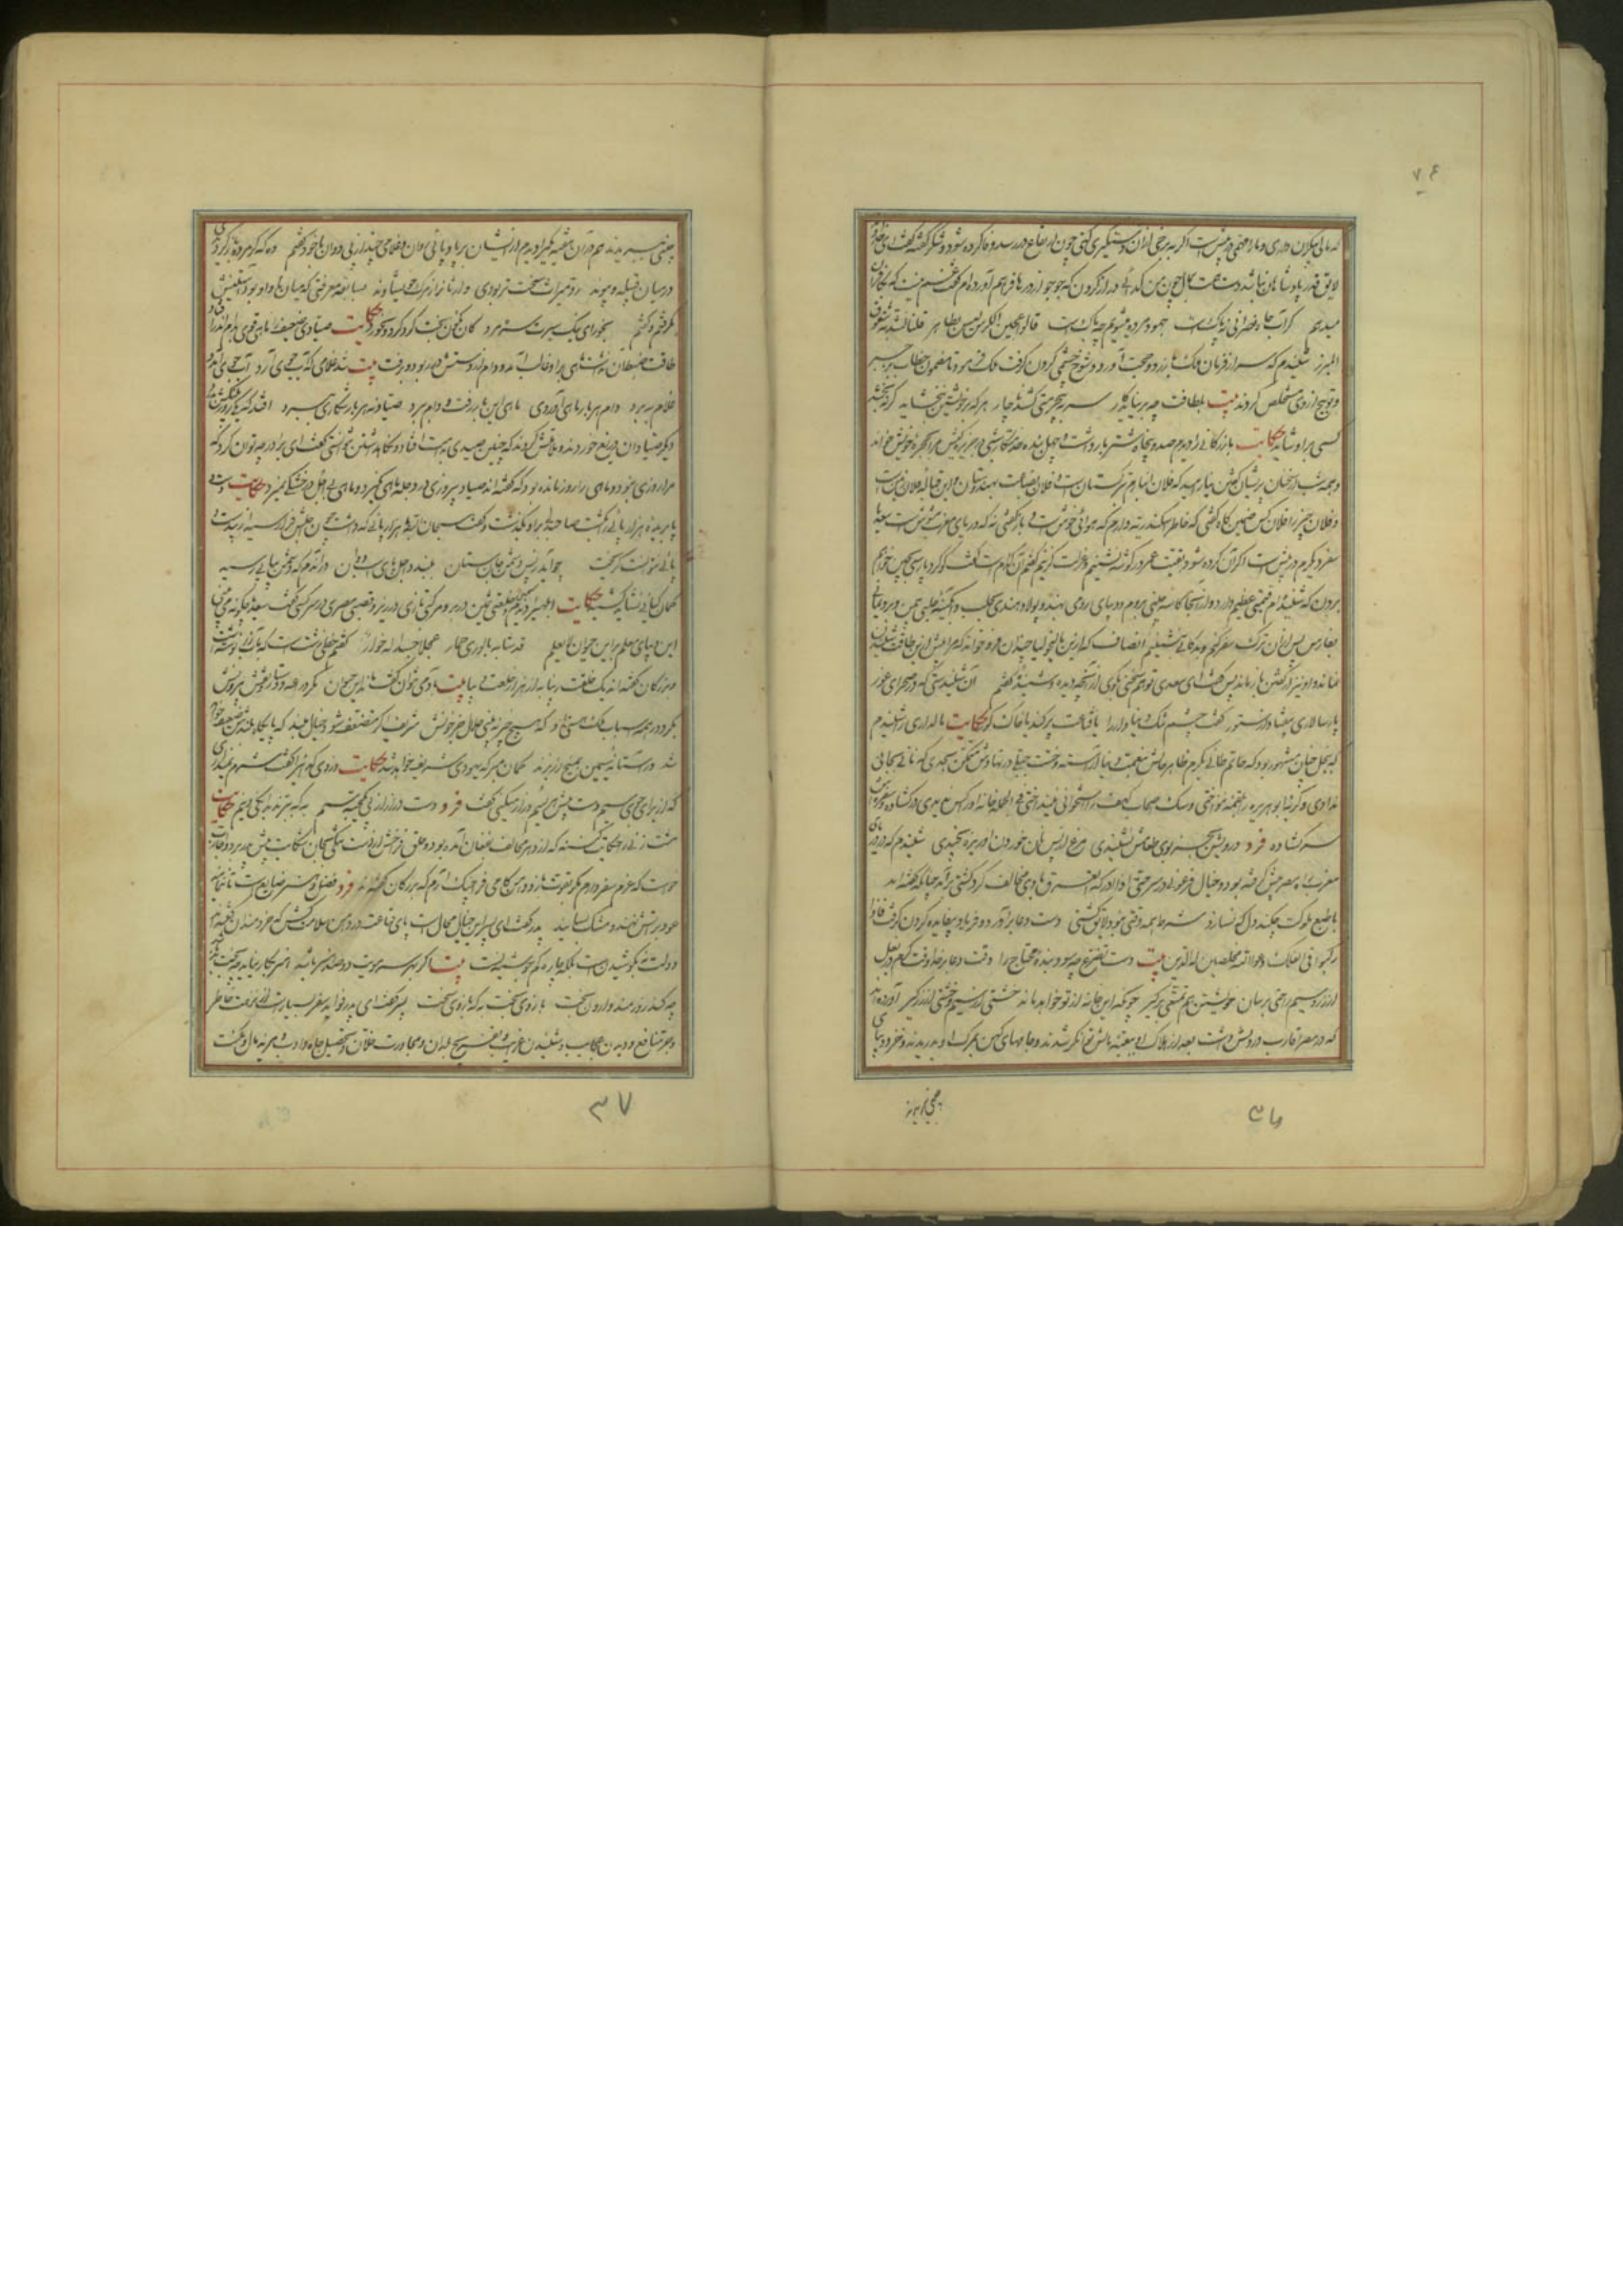 ۷۴
که مال بیکران داری و ما را مهمی در پیش است اگر به برخی از آن دستگیری کنی چون ارتفاع در رسد وفا کرده شود و شکر گفته گفت ای خداوند
لایق قدر پادشاهان نباشد دست همت بمال چون من گدائی دراز کردن که جو جو از در ها فراهم آورده ام گفت غم نیست که بکافران
میدهم گر آب چاه نصرانی نه پاکست جهود مرده میشویم چه باکست قالوا عجین الکلس لیس بطاهر قلنا نسد به شقوق
المبرز شنیدم که سر از فرمان ملک باز زد و حجت آورد و شوخ چشمی کردن گرفت ملک فرمود تا مضمون خطاب بزجر
و توبیخ از وی مستخلص کردند بیت بلطافت چو بر نیاید کار سر به بیحرمتی کشد ناچار هر که بر خویشتن نبخشاید گر نبخشد
کسی برو شاید حکایت بازرگانی را دیدم صد و پنجاه شتر بار داشت و چهل بنده خدمتکار شبی در جزیره کیش مرا بحجره خویش خواند
و همه شب از سخنان پریشان گفتن نیارمید که فلان انبارم بترکستان است و فلان بضاعت بهندوستان و این قباله فلان زمین است
و فلان چیز را فلان کس ضمین گاه گفتی که خاطر اسکندریه دارم که هوائی خوش است و باز گفتی نه که دریای مغرب مشوش است سعدیا
سفر دیگرم در پیش است اگر آن کرده شود بقیت عمر در گوشه بنشینم و عزلت گزینم گفتم آن کدام است گفت گوگرد پارسی بچین خواهم
بردن که شنیدم قیمتی عظیم دارد و از آنجا کاسه چینی بروم و دیبای رومی بهند و پولاد هندی بحلب و آبگینه حلبی بیمن و برد یمانی
بپارس پس از آن ترک سفر کنم و بدکانی بنشینم انصاف که ازین مالیخولیا چندان فرو خواند که مرا بیش ازین طاقت شنیدن
نماند و او نیز از گفتن باز ماند پس گفت ای سعدی تو هم سخنی بگوی از آنچه دیده و شنیده گفتم آن شنیدستی که در صحرای غور
بار سالاری بیفتاد از ستور گفت چشم تنگ دنیادار را یا قناعت پر کند یا خاک گور حکایت مالداری را شنیدم
که ببخل چنان مشهور بود که حاتم طائی بکرم ظاهر حالش بنعمت دنیا آراسته و خست جبلی در نهادش متمکن بحدی که نانی بجانی
ندادی و گربه ابو هریره را بلقمه ننواختی و سگ اصحاب کهف را استخوانی نینداختی فی الجمله خانه او را کس ندیدی در گشاده و سفره
سر گشاده فرد درویش بجز بوی طعامش نشنیدی مرغ از پس نان خوردن او ریزه نچیدی شنیدم که دریای
مغرب راه مصر پیش گرفته بود و خیال فرعونی در سر حتی اذا ادرکه الغرق بادی مخالف گرد کشتی برآمد چنانکه گفته اند
با طبع ملولت چکند دل که نسازد شرطه همه وقتی نبود لایق کشتی دست دعا برآورد و فریاد بیفایده کردن گرفت فاذا
رکبوا فی الفلک دعوا الله مخلصین له الدین بیت دست تضرع چه سود بنده محتاج را وقت دعا بر خدا وقت کرم در بغل
از زر و سیم راحتی برسان خویشتن هم تمتعی برگیر چونکه این خانه از تو خواهد ماند خشتی از سیم و خشتی از زر گیر آورده اند
که در مصر اقارب درویش داشت بعد از هلاک او ببقیت مالش توانگر شدند و جامهای کهن بمرگ او بدریدند و خز و دمیاطی
۳۶
چنین ببریدند هم در آن هفته یکی را دیدم از ایشان بر بادپائی روان و غلامی چند از پی دوان با خود گفتم وه که گر مرده باز گردیدی
در میان قبیله و پیوند رد میراث سخت تر بودی وارثانرا ز مرگ خویشاوند بسابقه معرفتی که میان ما و او بود آستینش
بگرفتم و گفتم بخور ای نیک سیرت سره مرد کان نگون بخت گرد کرد و نخورد حکایت صیادی ضعیف را ماهی قوی بدام اندر افتاد
طاقت ضبط آن نداشت ماهی برو غالب آمد و دام از دستش در ربود و برفت بیت شد غلامی که آب جوی آرد آب جوی آمد و
غلام ببرد دام هر بار ماهی آوردی ماهی این بار رفت و دام ببرد صیاد نه هر بار شکاری ببرد افتد که یکی روز پلنگش بدرد
دیگر صیادان دریغ خوردند و ملامتش کردند که چنین صیدی بدست افتاد و نگاه داشتن نتوانستی گفت ای برادر چه توان کرد که
مرا روزی نبود و ماهی را روز مانده بود که گفته اند صیاد بیروزی در دجله ماهی نگیرد و ماهی بی اجل در خشکی نمیرد حکایت دست و
پا بریده هزارپائی را بکشت صاحبدلی برو بگذشت و گفت سبحان الله با هزار پائی که داشت چون اجلش فرا رسید از بیدست و
پائی نتوانست گریخت چو آید ز پس دشمن جان ستان ببندد اجل پای اسب دوان در آندم که دشمن پیاپی رسید
کمان کیانی نشاید کشید حکایت ابلهی را دیدم سمین خلعتی ثمین در بر و مرکبی تازی در زیر و قصبی مصری در سر کسی گفت سعدیا چگونه می بینی
این دیبای معلم بر این حیوان لایعلم قد شابه بالوری حمار عجلا جسدا له خوار گفتم خطی زشت است که بآب زر نبشته است
و بزرگان گفته اند یک خلقت زیبا به از هزار خلعت دیبا بیت بآدمی نتوان گفت ماند این حیوان مگر دراعه و دستار و نقش بیرونش
بگرد در همه اسباب و ملک و هستی او که هیچ چیز نبینی حلال جز خونش شریف اگر متضعف شود خیال مبند که پایگاه بلندش ضعیف خواهد
شد ور آستانه سیمین بمیخ زر بزند گمان مبر که یهودی شریف خواهد شد حکایت دزدی گدائی را گفت شرم نداری
که از برای جوی سیم دست پیش هر لئیم دراز میکنی گفت فرد دست دراز از پی یک حبه سیم به که ببرند بدانگی و نیم حکایت
مشت زنی را حکایت کنند که از دهر مخالف بفغان آمده بود و حلق فراخش از دست تنگی بجان شکایت پیش پدر برد و اجازت
خواست که عزم سفر دارم مگر بقوت بازو دامن کامی فرا چنگ آرم که بزرگان گفته اند فرد فضل و هنر ضایع است تا ننمایند
عود بر آتش نهند و مشک بسایند پدر گفت ای پسر این خیال محال است پای قناعت در دامن سلامت کش که خردمندان گفته اند
دولت نه بکوشیدن است بلکه چاره کم جوشیدنست بیت اگر بهر سر مویت دو صد هنر باشد هنر بکار نیاید چو بخت بد
چه کند زورمند وارون بخت بازوی بخت به که بازوی سخت پسر گفت ای پدر فواید سفر بسیار است از نزهت خاطر
و جر منافع و دیدن عجایب و شنیدن غرایب و تفرج بلدان و مجاورت خلان و تحصیل جاه و ادب و مزید مال و مکنت
۳۷